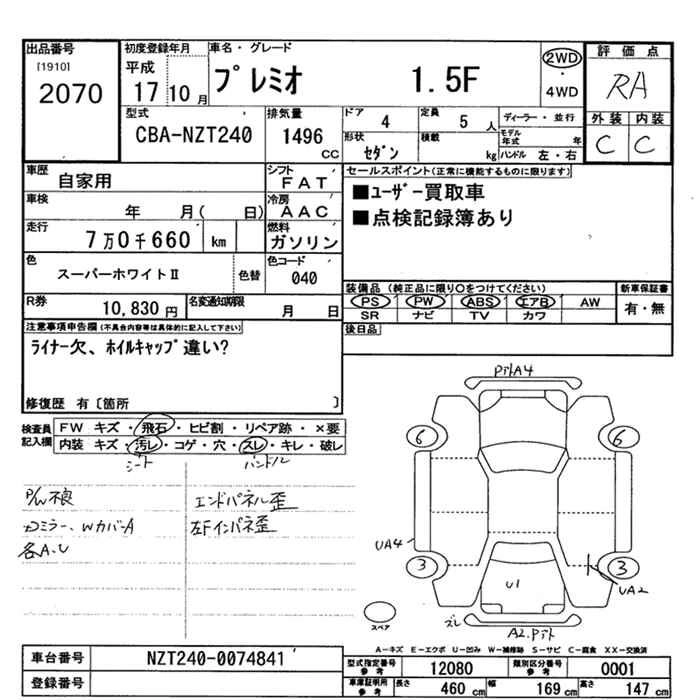 出品番号
[1910]
2070
初度登録年月
平成
17 10 月
車名・グレード
プレミオ 1.5F
2WD
・
4WD
評価点
RA
外装 内装
C C
型式
CBA-NZT240
排気量
1496
cc
ドア 4
定員 5 人
形状 セダン
積載 kg
ディーラー・並行
モデル年式 年
ハンドル 左・右
車歴 自家用
シフト FAT
車検 年 月( 日)
冷房 AAC
走行 7万0千660 km
燃料 ガソリン
色 スーパーホワイトⅡ 色替
色コード 040
R券 10,830 円
名変通知期限 月 日
セールスポイント(正常に機能するものに限ります)
■ユーザー買取車
■点検記録簿あり
装備品(純正品に限り○をつけてください)
PS PW ABS エアB AW
SR ナビ TV カワ
新車保証書
有・無
後日品
注意事項申告欄(不具合内容等は具体的に記入して下さい)
ライナー欠、ホイルキャップ違い?
修復歴 有〔箇所 〕
検査員記入欄
FW キズ・飛石・ヒビ割・リペア跡・×要
内装 キズ・汚レ・コゲ・穴・スレ・キレ・破レ
シート ハンドル
P/W不良
エンドパネル歪
ロミラー、WカバーA
左Fインパネ歪
各A.U
PルトA4
6 6
UA4
3 3
UA2
U1
ズレ
A2.Pルト
スペア
A-キズ E-エクボ U-凹み W-補修跡 S-サビ C-腐食 XX-交換済
車台番号 NZT240-0074841
登録番号
型式指定番号 参考 12080
類別区分番号 参考 0001
車庫証明用 参考 長さ 460 cm 幅 169 cm 高さ 147 cm